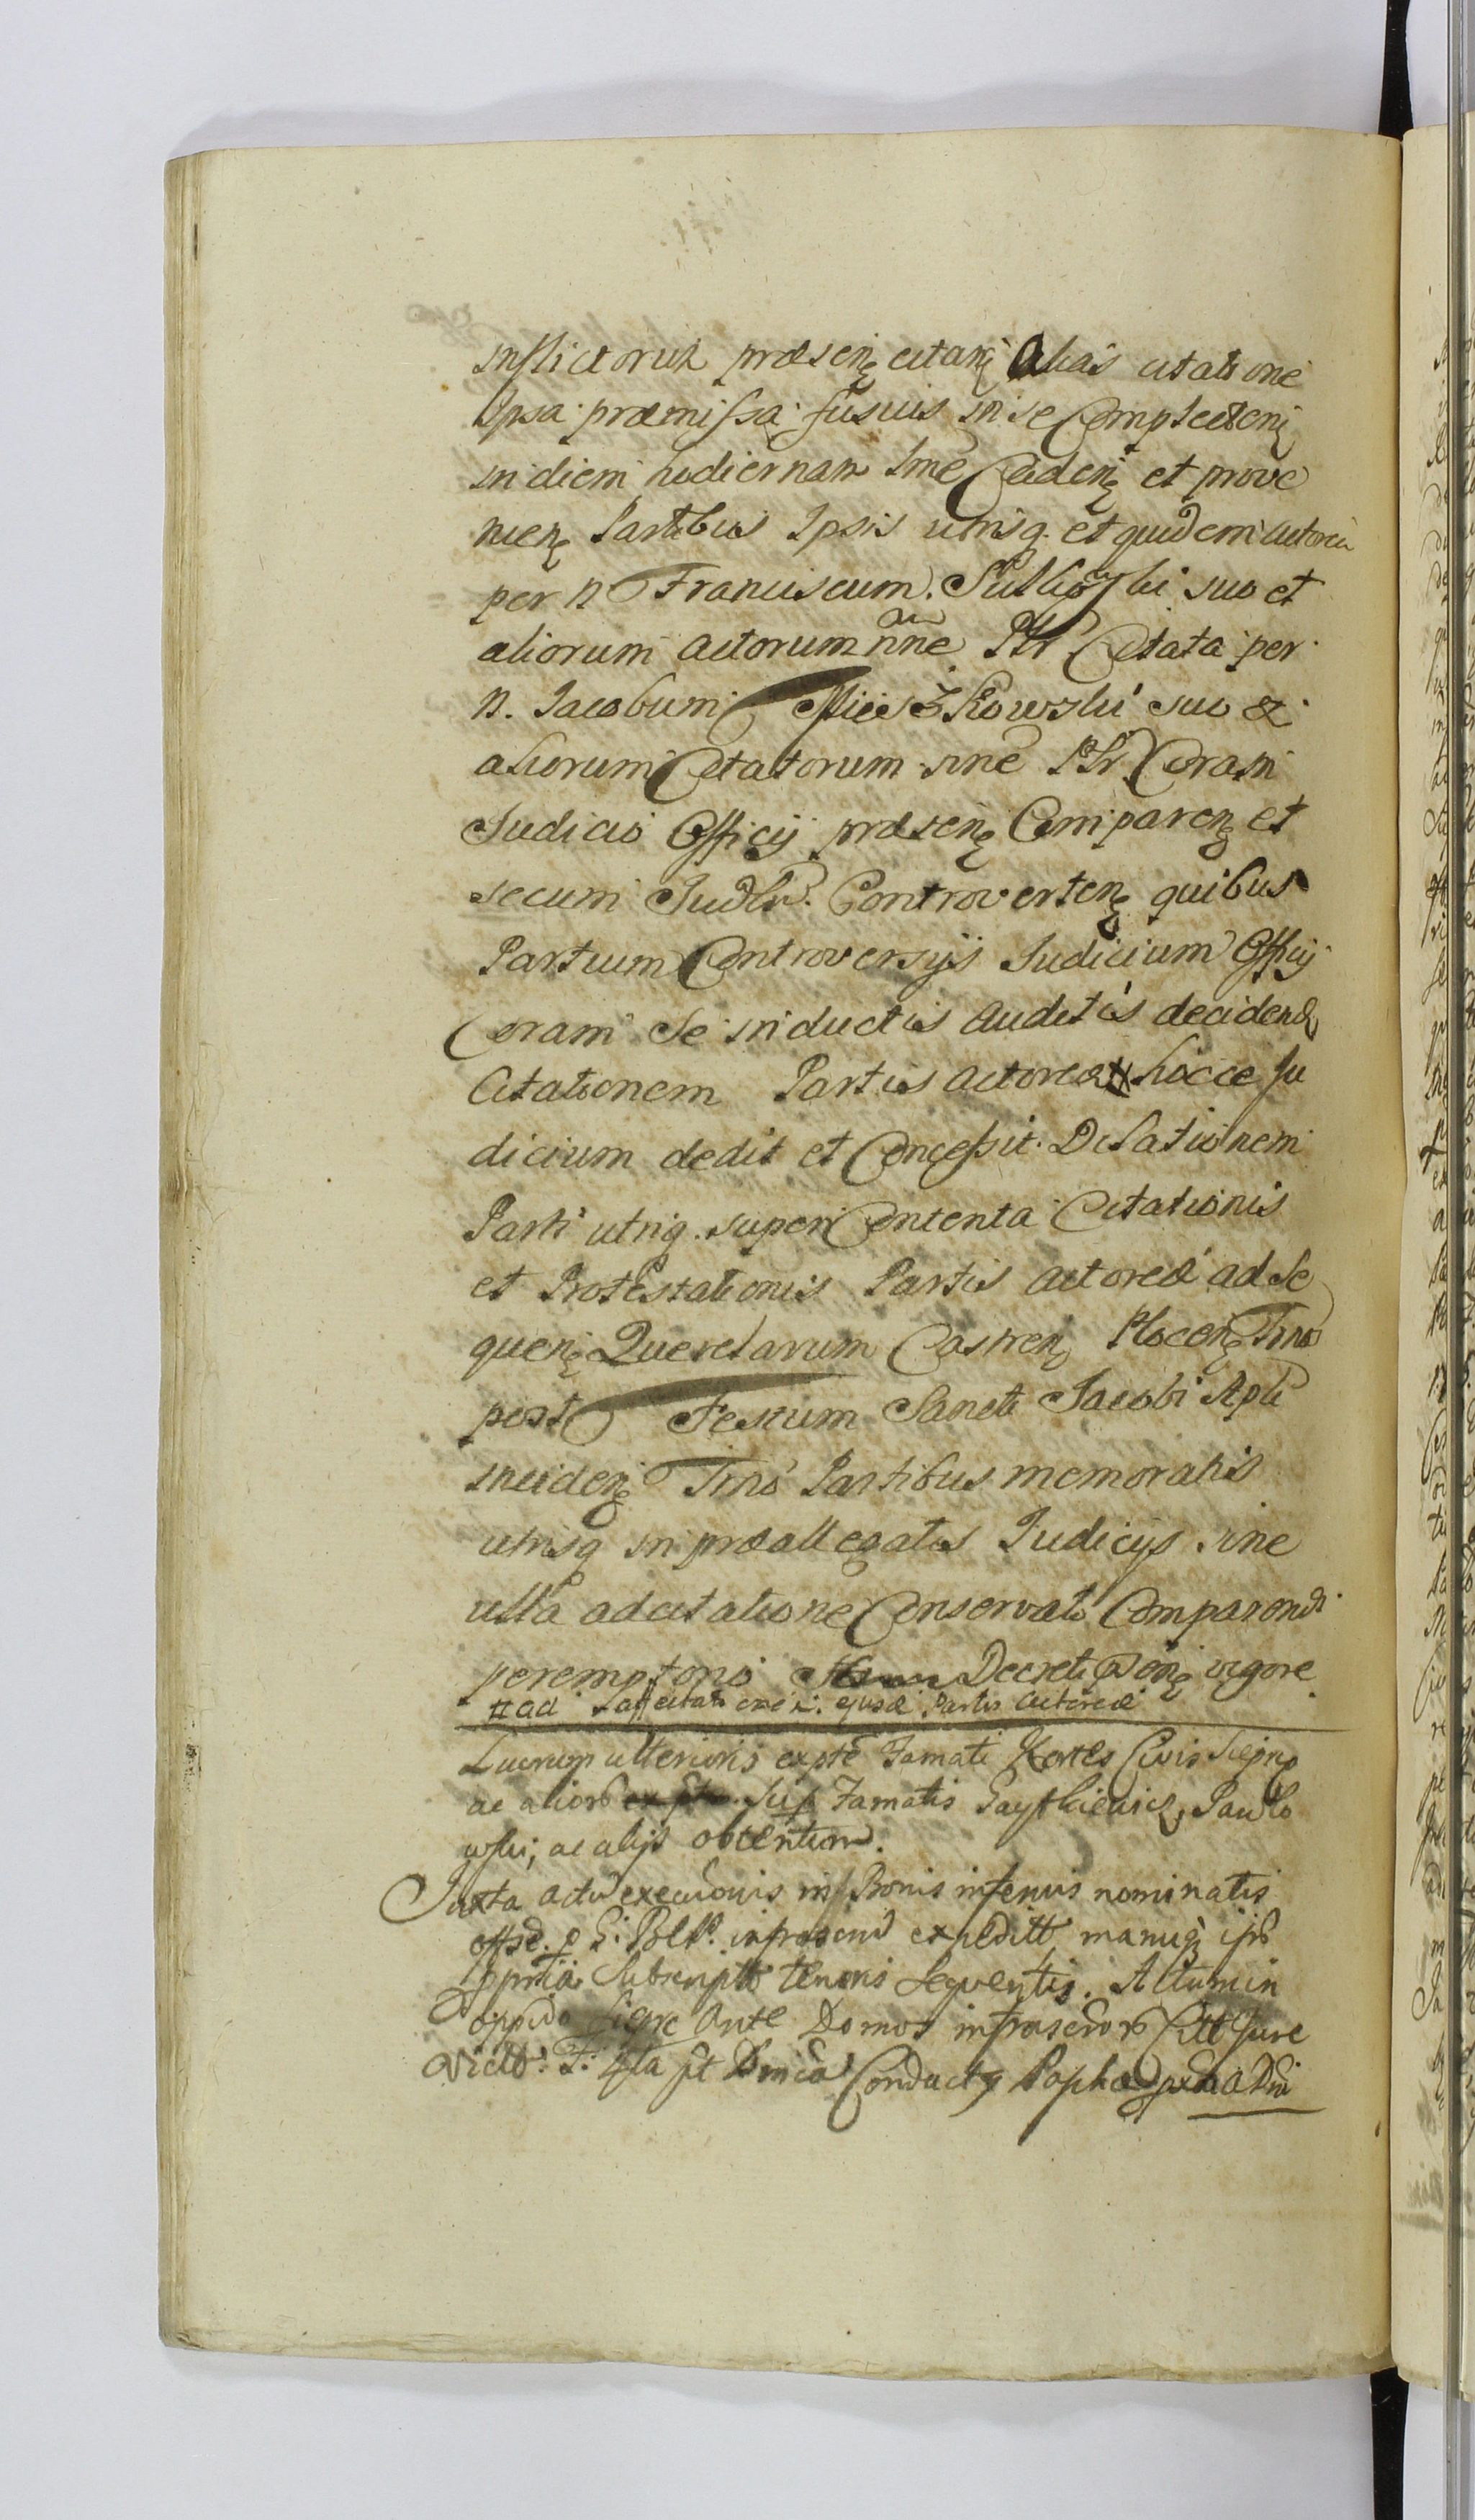 inflictorum præsen citan Alias citatione
Ipsa præmissa fusius in se Complecten
in diem hodiernam Caden et prove
nien Partibus Ipsis utrisq. et quidem actorea
per N Franciscum suo et
aliorum actorum nne Ptr Citata per
N. Jacobum Mieszkowski suo &
aliorum Citatorum nne Ptr Coram
Judicio Officij præsen Comparen et
secum Judlr. Controverten quibus
Partium Controversijs Judicium Officij
Coram se inductis Auditis deciden
Citationem Partis actoreæ # hocce Ju
dicium dedit et Concessit Dilationem
Parti utriq. super Contenta Citationis
et Protestationis Partis actoreæ ad Se
quen Querelarum Castren Plocen Tnos
post Festum Sancti Jacobi Apli
inciden Tnô Partibus memoratis
utrisq in præallegatis Judicijs sine
ulla adcitatione Conservato Comparendi
peremptorio Decreti pñ vigore
# ad ejusd Partis Actoreæ
Lucrum ulterioris ex pte Famati Civis Sieprc
ac alior Sup Famatis Paulo
wski, ac alijs obtentum.
Juxta actu execuonis in Bonis inferius nominatis
offse. p expeditt, manuq ips
ppria Subscripto tenoris sequentis. Actum in
oppido Sieprc Ante Domos infrascr Citt Jure
Vict. F: 4ta pt Dnicâ Conduct Paschæ A Dni